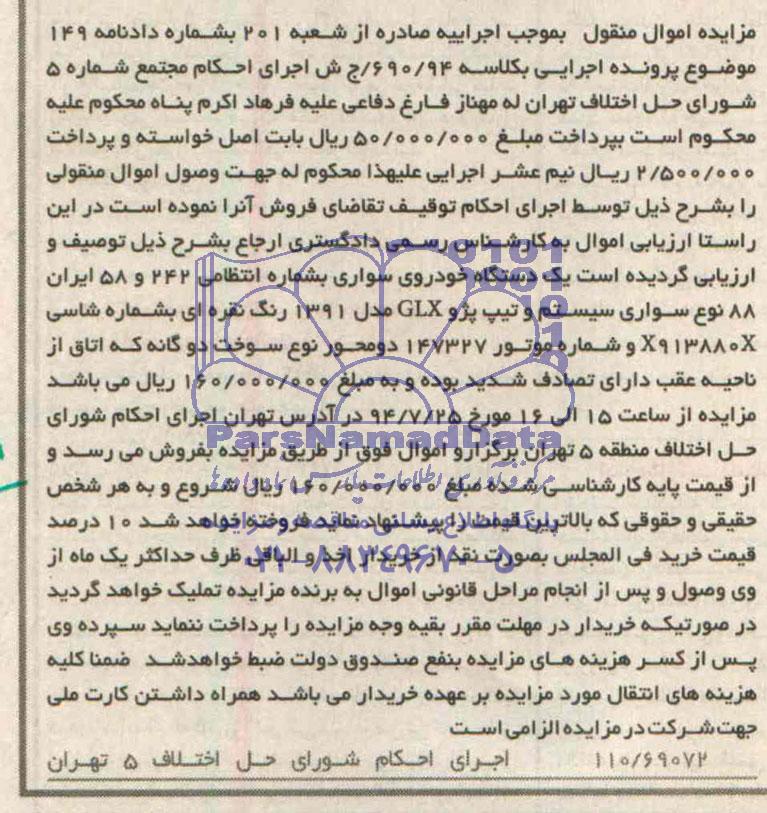 مزایده اموال منقول بموجب اجراییه صادره از شعبه ۲۰۱ بشماره دادنامه ۱۴۹
موضوع پرونده اجرایی بکلاسه ۶۹۰/۹۴/ج ش اجرای احکام مجتمع شماره ۵
شورای حل اختلاف تهران له مهناز فارغ دفاعی علیه فرهاد اکرم پناه محکوم علیه
محکوم است بپرداخت مبلغ ۵۰/۰۰۰/۰۰۰ ریال بابت اصل خواسته و پرداخت
۲/۵۰۰/۰۰۰ ریال نیم عشر اجرایی علیهذا محکوم له جهت وصول اموال منقولی
را بشرح ذیل توسط اجرای احکام توقیف تقاضای فروش آنرا نموده است در این
راستا ارزیابی اموال به کارشناس رسمی دادگستری ارجاع بشرح ذیل توصیف و
ارزیابی گردیده است یک دستگاه خودروی سواری بشماره انتظامی ۲۴۲ و ۵۸ ایران
۸۸ نوع سواری سیستم و تیپ پژو GLX مدل ۱۳۹۱ رنگ نقره ای بشماره شاسی
X۹۱۳۸۸۰X و شماره موتور ۱۴۷۳۲۷ دومحور نوع سوخت دو گانه که اتاق از
ناحیه عقب دارای تصادف شدید بوده و به مبلغ ۱۶۰/۰۰۰/۰۰۰ ریال می باشد
مزایده از ساعت ۱۵ الی ۱۶ مورخ ۹۴/۷/۲۵ در آدرس تهران اجرای احکام شورای
ParsNamadData
حل اختلاف منطقه ۵ تهران برگزارو اموال فوق از طریق مزایده بفروش می رسد و
از قیمت پایه کارشناسی شده مبلغ ۱۶۰/۰۰۰/۰۰۰ ریال شروع و به هر شخص
حقیقی و حقوقی که بالاترین قیمت را پیشنهاد نماید فروخته خواهد شد ۱۰ درصد
قیمت خرید فی المجلس بصورت نقد از خریدار اخذ و الباقی ظرف حداکثر یک ماه از
۰۲۱-۸۸۳۴۹۶۷۰-۵
وی وصول و پس از انجام مراحل قانونی اموال به برنده مزایده تملیک خواهد گردید
در صورتیکه خریدار در مهلت مقرر بقیه وجه مزایده را پرداخت ننماید سپرده وی
پس از کسر هزینه های مزایده بنفع صندوق دولت ضبط خواهدشد ضمنا کلیه
هزینه های انتقال مورد مزایده بر عهده خریدار می باشد همراه داشتن کارت ملی
جهت شرکت در مزایده الزامی است
۱۱۰/۶۹۰۷۲ اجرای احکام شورای حل اختلاف ۵ تهران